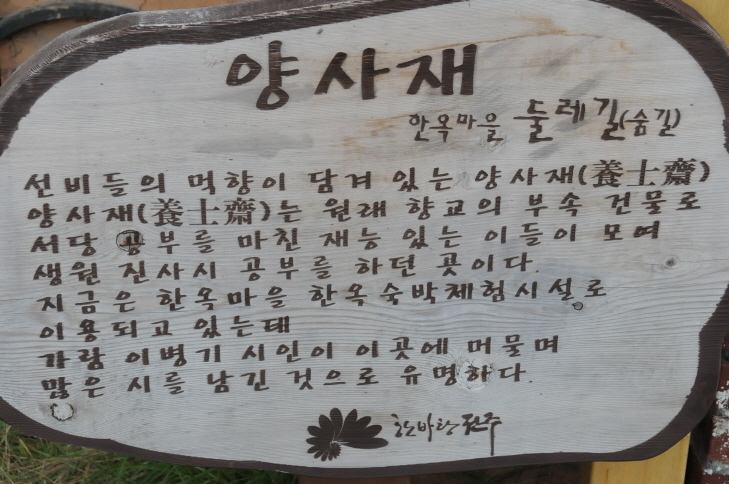 양사재
한옥마을 둘레길(숨길)
선비들의 먹향이 담겨 있는 양사재(養士齋)
양사재(養士齋)는 원래 향교의 부속 건물로
서당 공부를 마친 재능 있는 이들이 모여
생원 진사시 공부를 하던 곳이다.
지금은 한옥마을 한옥숙박체험시설로
이용되고 있는데
가람 이병기 시인이 이곳에 머물며
많은 시를 남긴 것으로 유명하다.
한바탕 전주